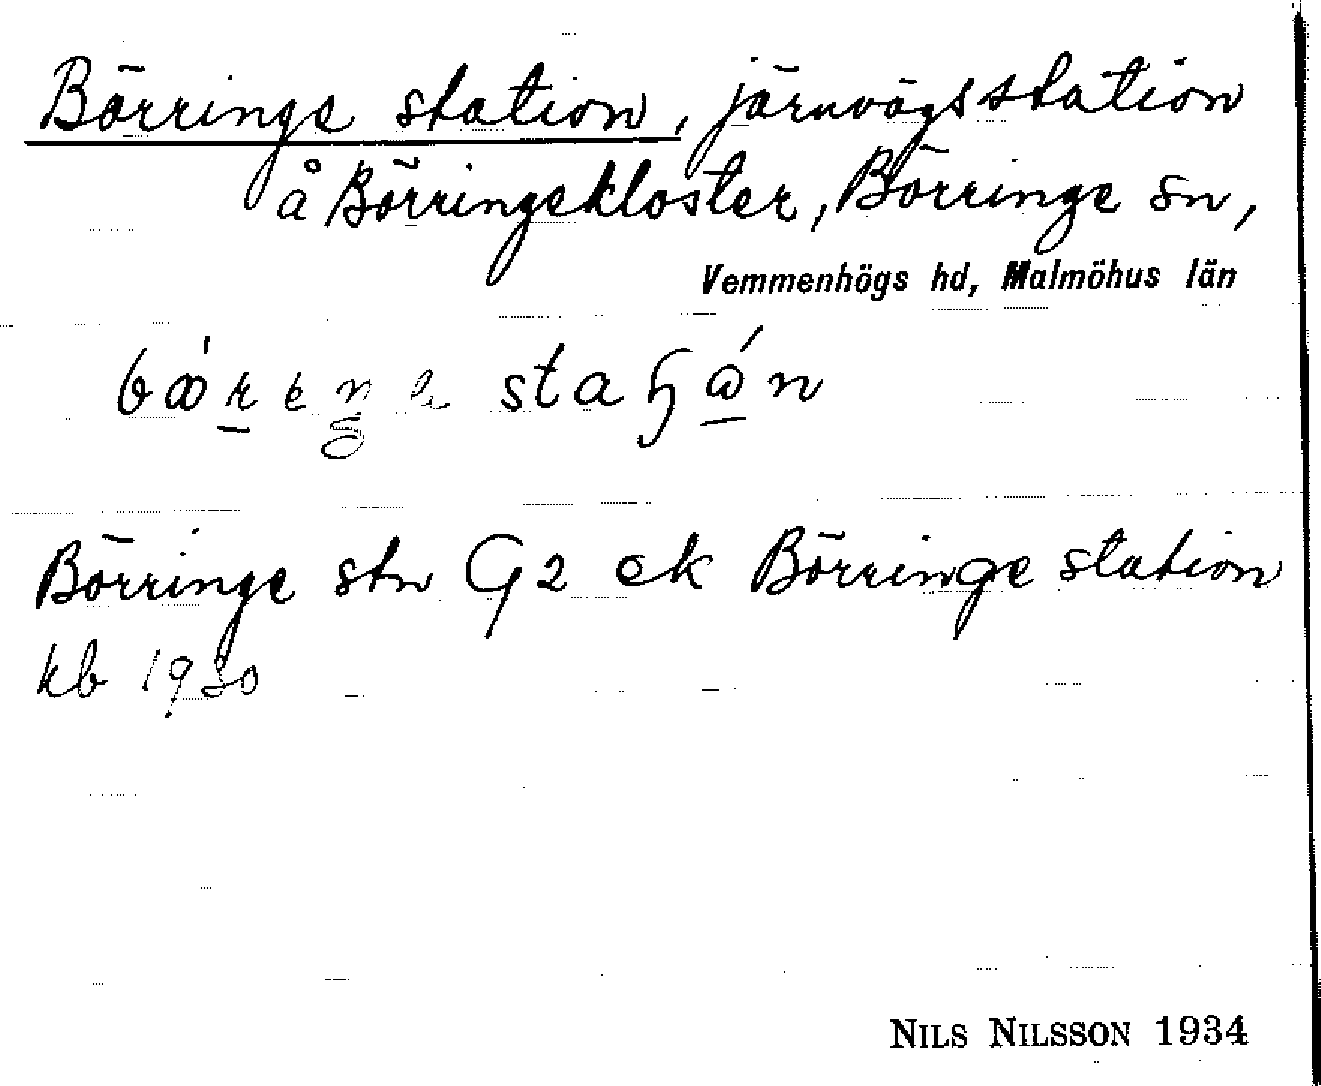 Börringe station, järnvägsstation
å Börringekloster, Börringe sn,
Vemmenhögs hd, Malmöhus län
Börringe stn G2 ek Börringe station
kb 1930
NILS NILSSON 1934